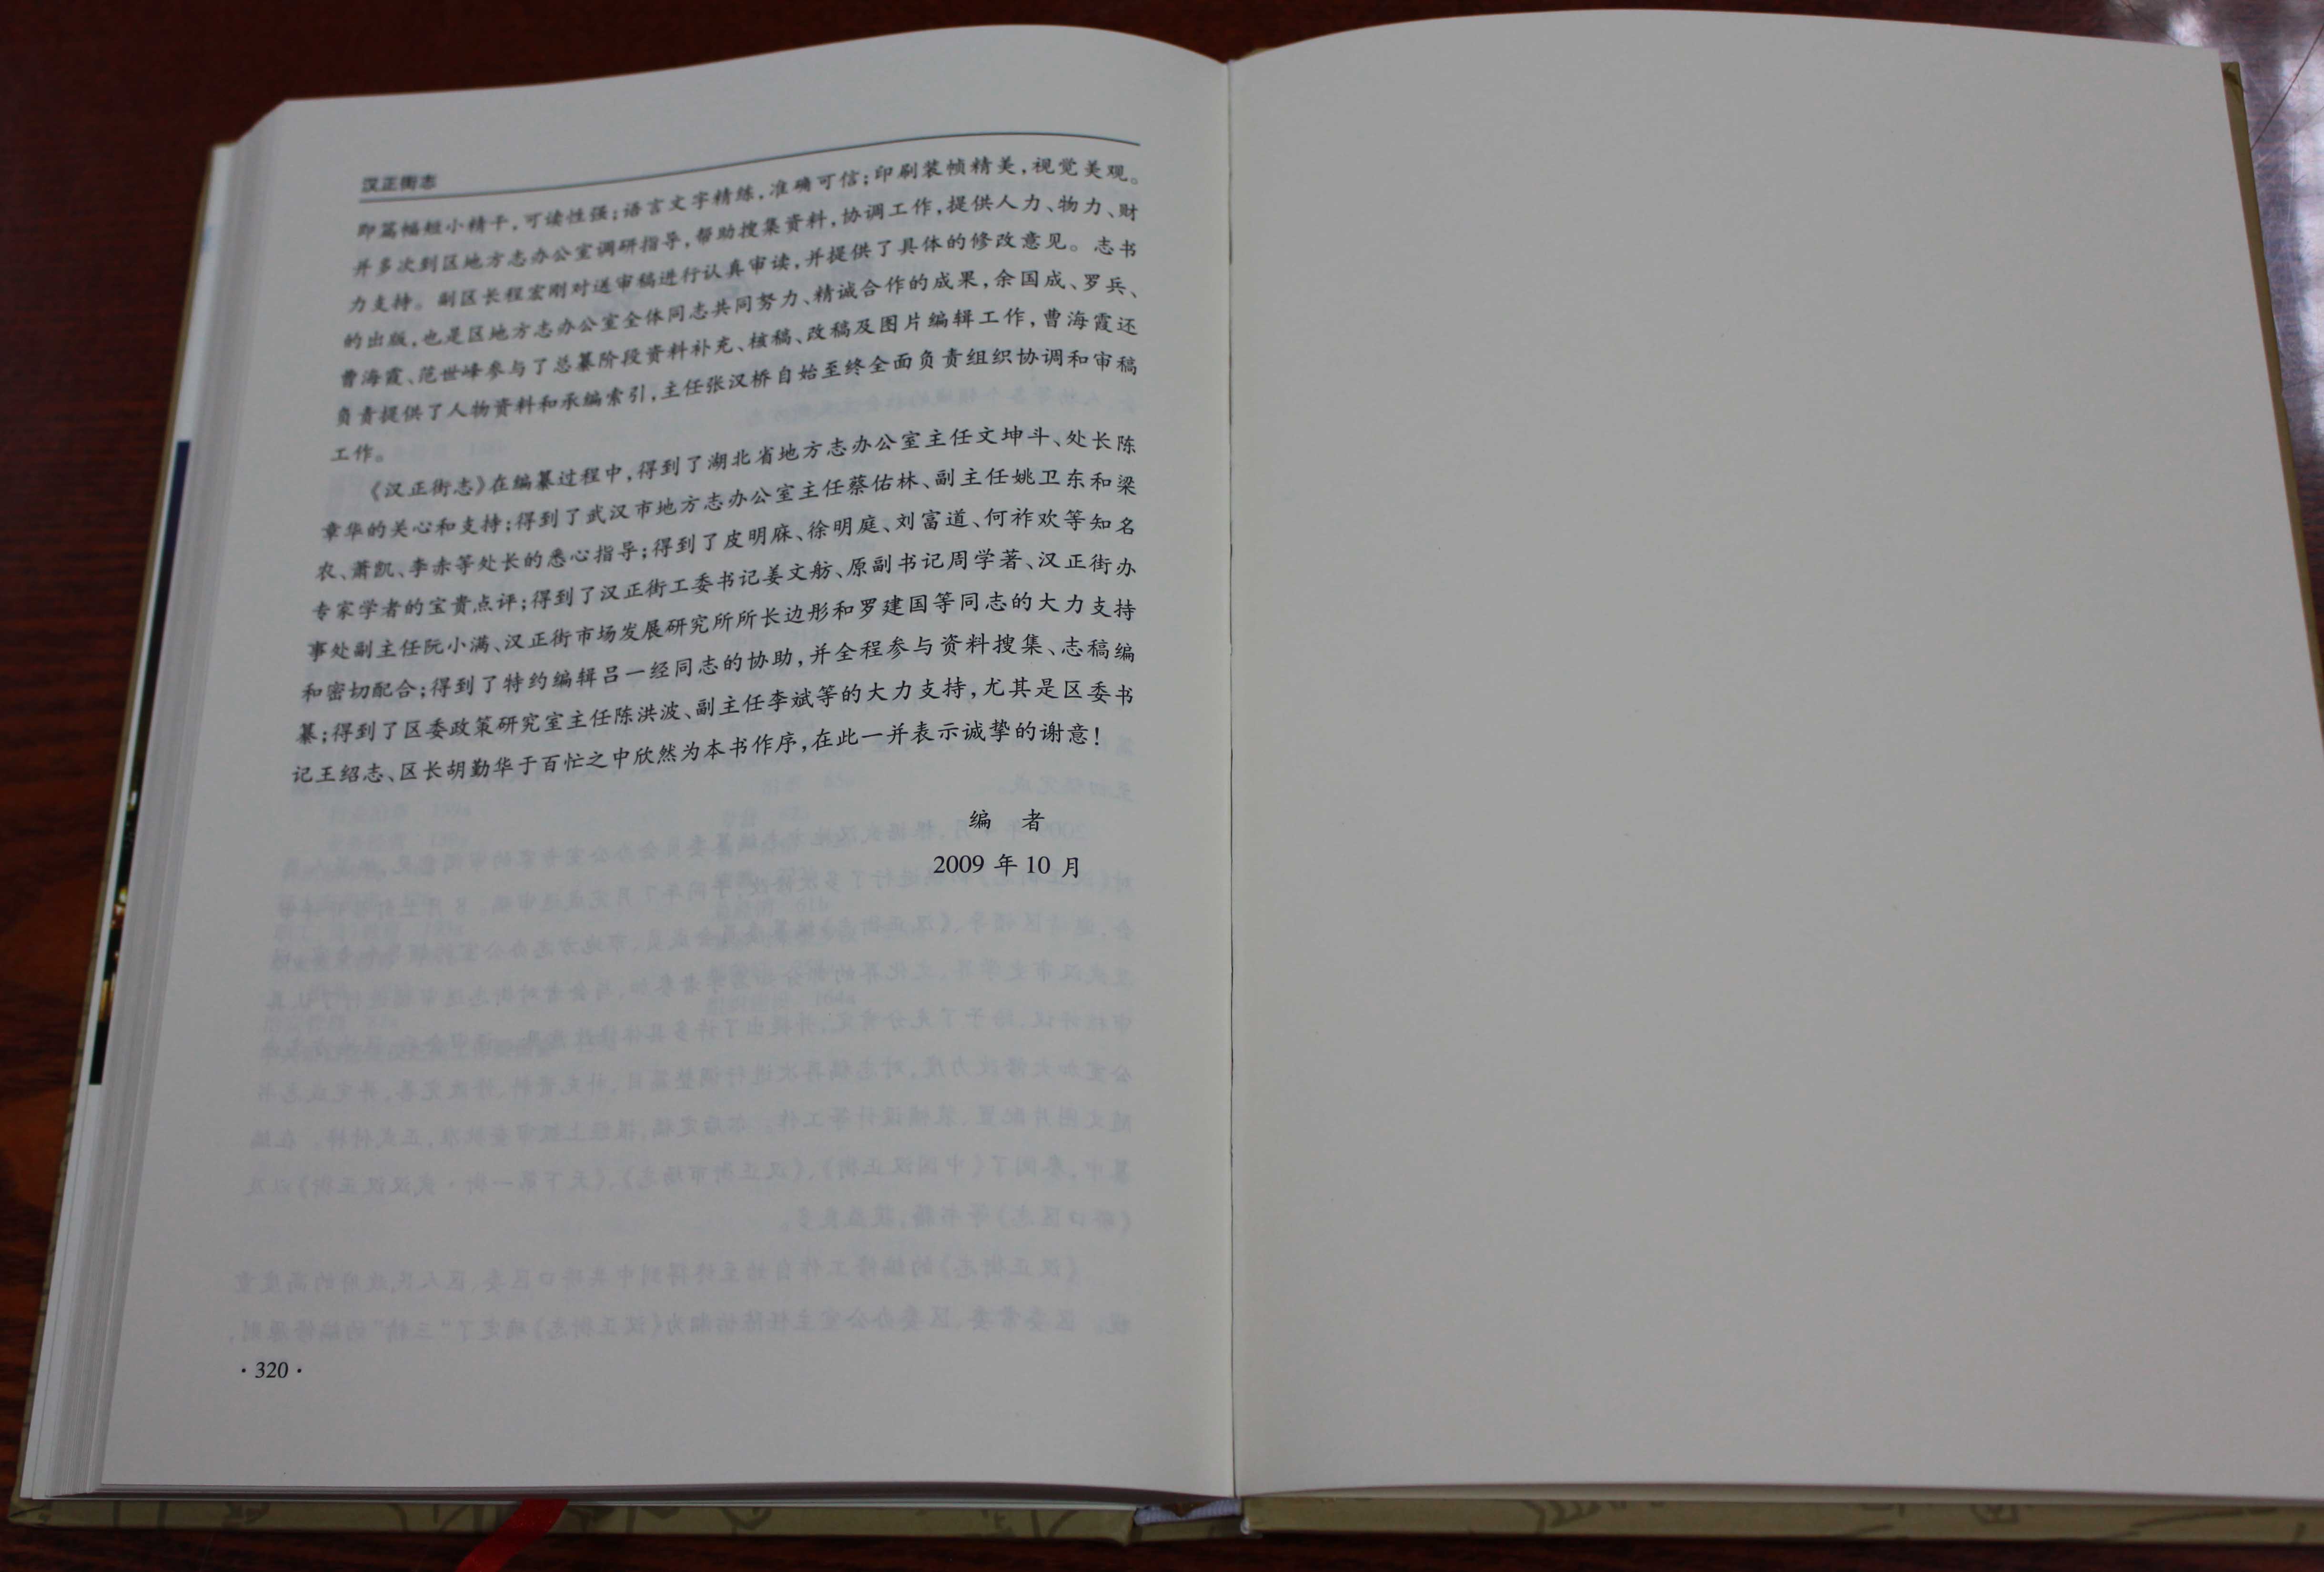 汉正街志
即篇幅短小精干,可读性强;语言文字精练,准确可信;印刷装帧精美,视觉美观。
并多次到区地方志办公室调研指导,帮助搜集资料,协调工作,提供人力、物力、财
力支持。副区长程宏刚对送审稿进行认真审读,并提供了具体的修改意见。志书
的出版,也是区地方志办公室全体同志共同努力、精诚合作的成果,余国成、罗兵、
曹海霞、范世峰参与了总纂阶段资料补充、核稿、改稿及图片编辑工作,曹海霞还
负责提供了人物资料和承编索引,主任张汉桥自始至终全面负责组织协调和审稿
工作。
《汉正街志》在编纂过程中,得到了湖北省地方志办公室主任文坤斗、处长陈
章华的关心和支持;得到了武汉市地方志办公室主任蔡佑林、副主任姚卫东和梁
农、萧凯、李赤等处长的悉心指导;得到了皮明庥、徐明庭、刘富道、何祚欢等知名
专家学者的宝贵点评;得到了汉正街工委书记姜文舫、原副书记周学著、汉正街办
事处副主任阮小满、汉正街市场发展研究所所长边彤和罗建国等同志的大力支持
和密切配合;得到了特约编辑吕一经同志的协助,并全程参与资料搜集、志稿编
纂;得到了区委政策研究室主任陈洪波、副主任李斌等的大力支持,尤其是区委书
记王绍志、区长胡勤华于百忙之中欣然为本书作序,在此一并表示诚挚的谢意!
编 者
2009 年 10 月
· 320 ·